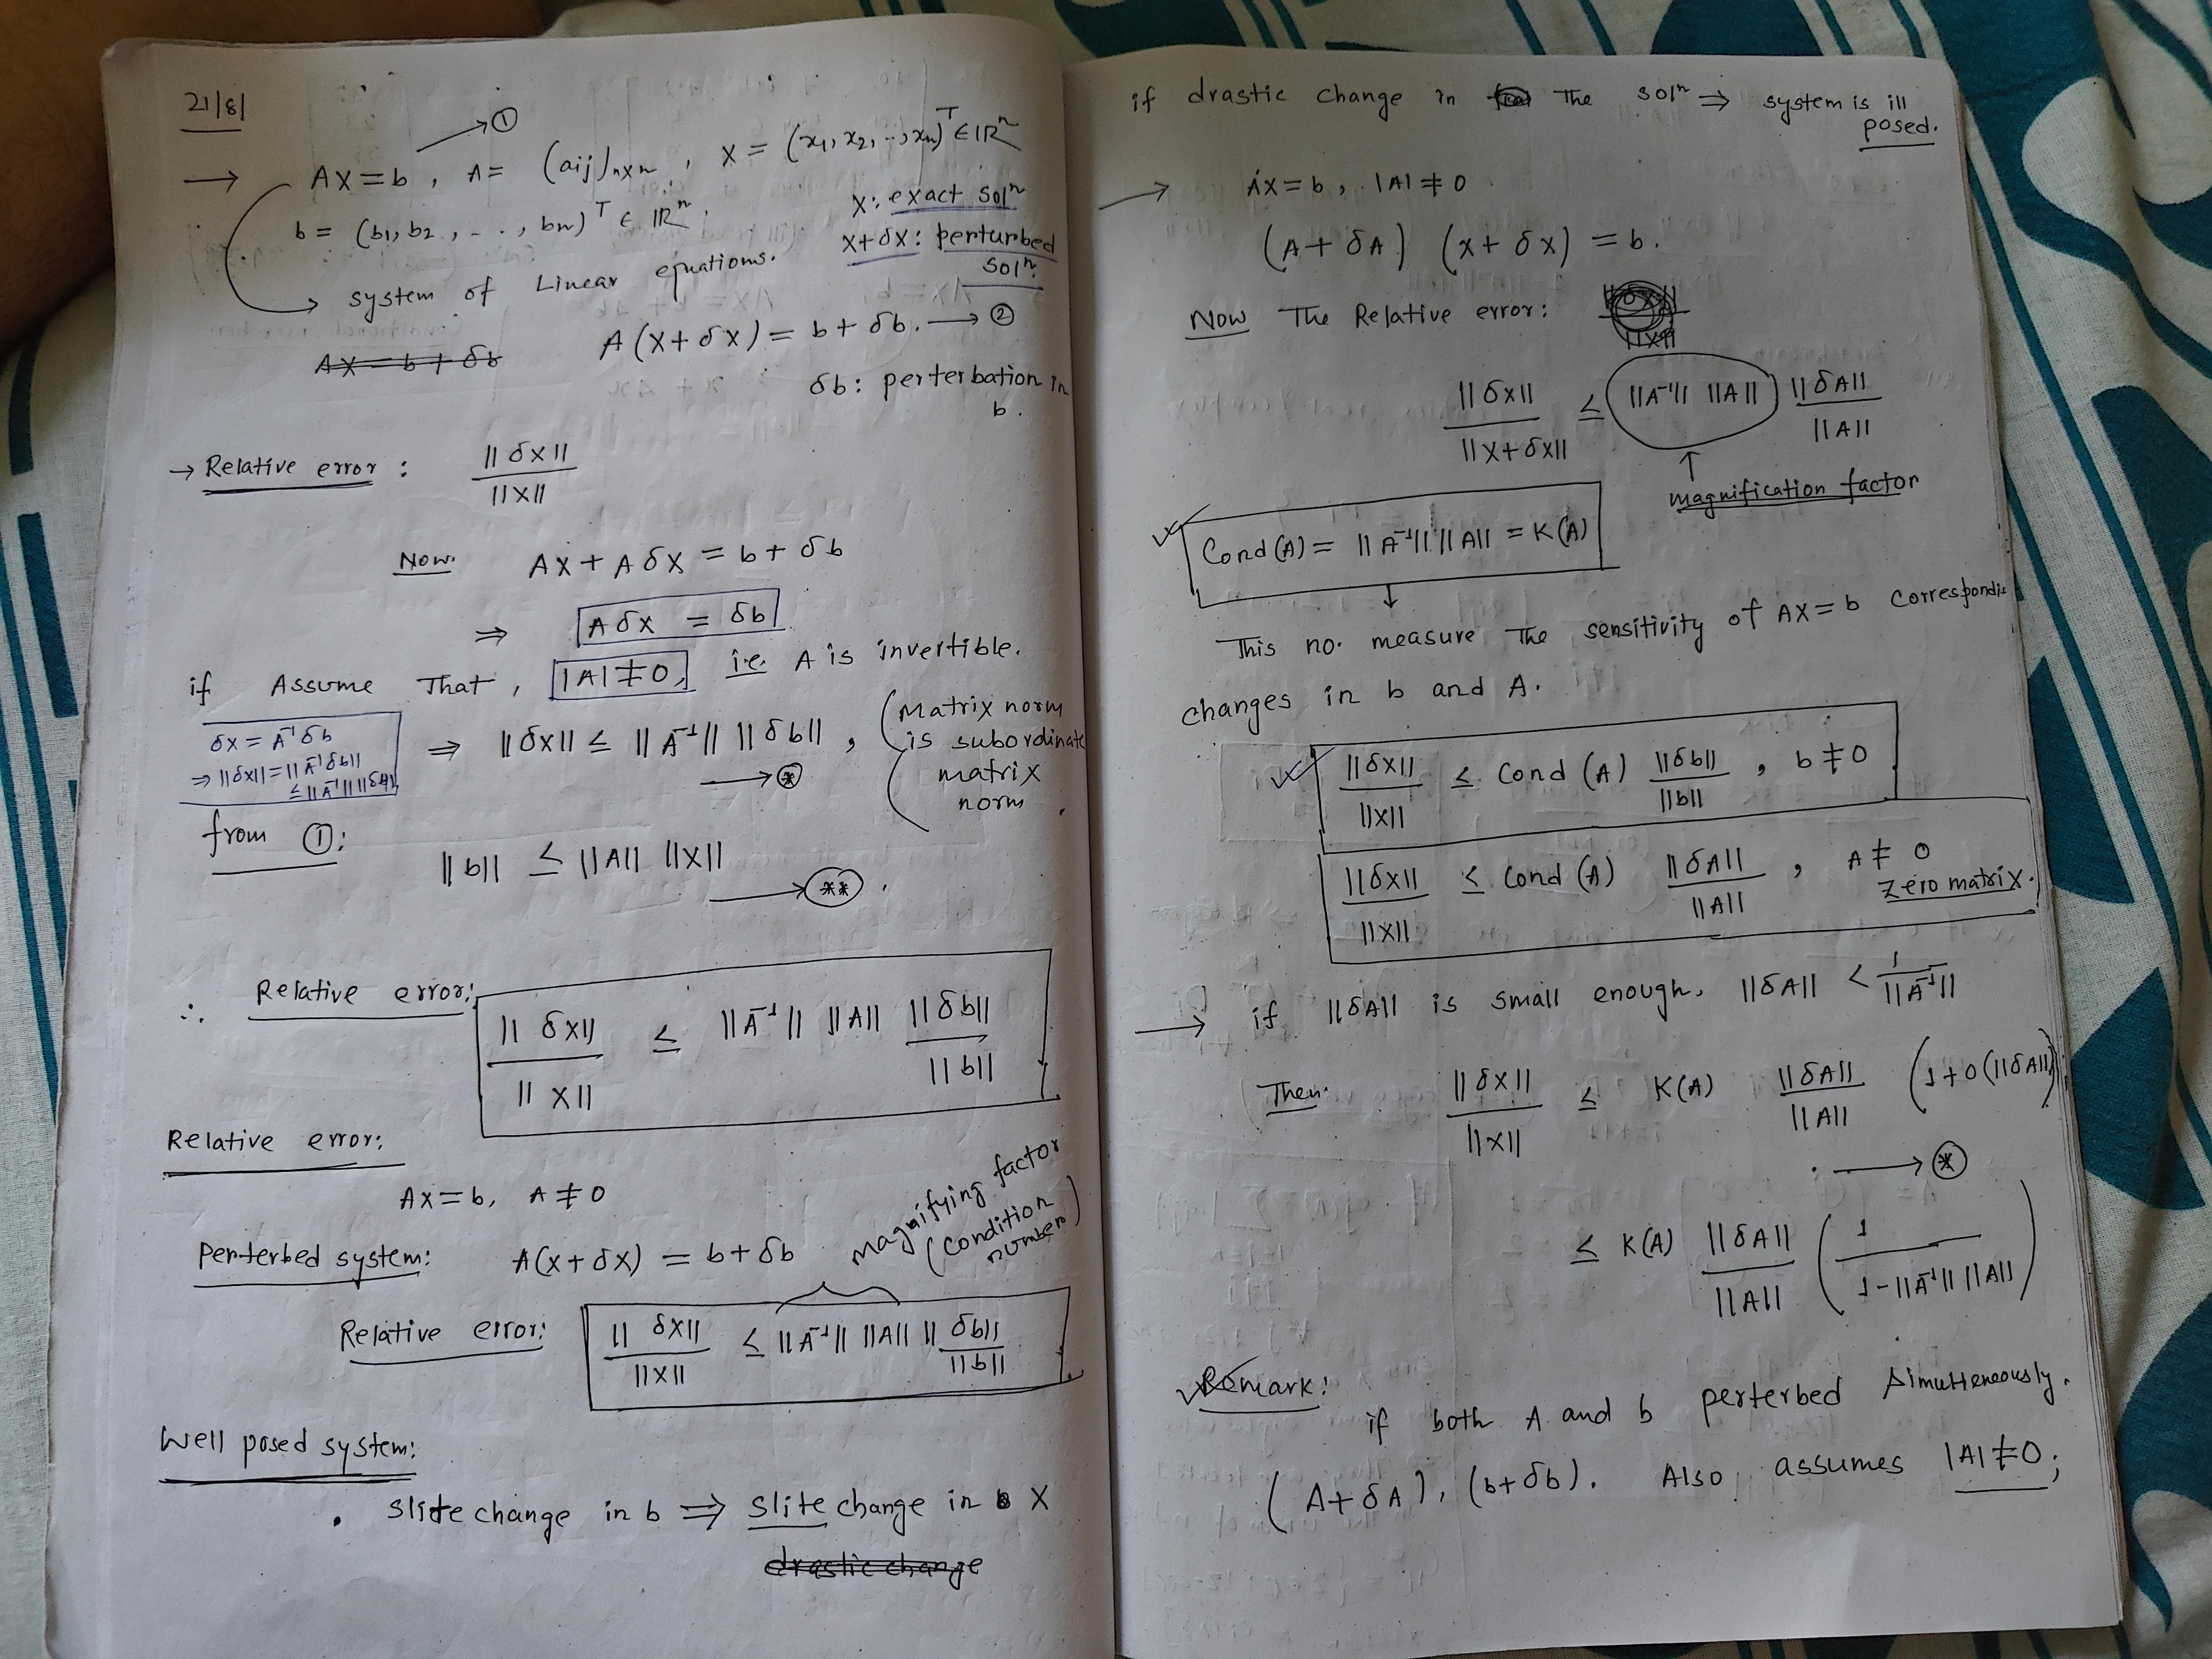 21/8/
→ AX=b, → ① A= (aij)nxn, X = (x1, x2, .., xn)^T ∈ IR^n
b = (b1, b2, - . . , bn)^T ∈ IR^n.
X: exact sol^n
→ system of Linear equations.
X+δX: perturbed sol^n.
AX = b + δb
A(X+δX) = b + δb. → ②
δb: perterbation in b.
→ Relative error : ||δX|| / ||X||
Now. AX + AδX = b + δb
⇒ AδX = δb
if Assume That, |A| ≠ 0, i.e. A is invertible.
δX = A^-1 δb
⇒ ||δX|| = ||A^-1 δb||
≤ ||A^-1|| ||δb||
⇒ ||δX|| ≤ ||A^-1|| ||δb||, → ⊛
(Matrix norm is subordinate matrix norm.
from ①:
||b|| ≤ ||A|| ||X|| → (**) .
∴ Relative error: ||δX|| / ||X|| ≤ ||A^-1|| ||A|| ||δb|| / ||b||
Relative error:
AX=b, A ≠ 0
Perterbed system: A(X+δX) = b+δb
magnifying factor (condition number)
Relative error: ||δX|| / ||X|| ≤ ||A^-1|| ||A|| ||δb|| / ||b||
Well posed system:
. slite change in b ⇒ slite change in X
drastic change
if drastic change in The sol^n ⇒ system is ill posed.
→ AX=b, |A| ≠ 0
(A+δA) (X+δX) = b.
Now The Relative error:
||δX|| / ||X+δX|| ≤ ||A^-1|| ||A|| ||δA|| / ||A||
↑
magnification factor
Cond(A) = ||A^-1|| ||A|| = K(A)
↓
This no. measure The sensitivity of AX=b correspondi
changes in b and A.
||δX|| / ||X|| ≤ Cond (A) ||δb|| / ||b|| , b ≠ 0
||δX|| / ||X|| ≤ Cond (A) ||δA|| / ||A|| , A ≠ 0
Zero matrix.
→ if ||δA|| is small enough, ||δA|| < 1 / ||A^-1||
Then. ||δX|| / ||X|| ≤ K(A) ||δA|| / ||A|| (1+0(||δA||)
. → ⊛
≤ K(A) ||δA|| / ||A|| (1 / 1-||A^-1|| ||A||)
Remark:
if both A and b perterbed simulteneously.
(A+δA), (b+δb). Also, assumes |A| ≠ 0;